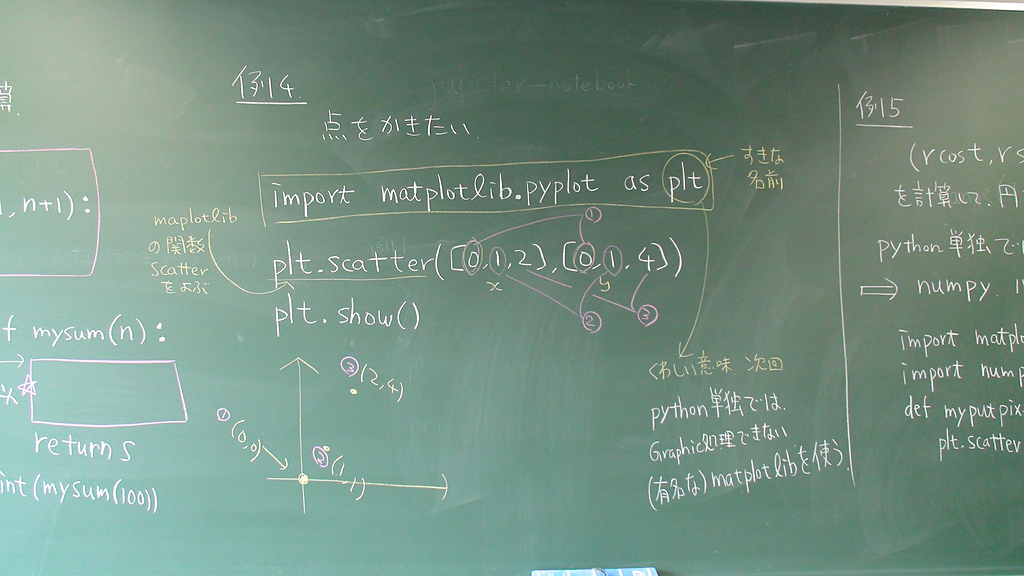 算.
, n+1):
f mysum(n):
return s
int(mysum(100))
例14
点をかきたい.
import matplotlib.pyplot as plt
すきな
名前
maplotlib
の関数
Scatter
をよぶ
plt.scatter([0,1,2],[0,1,4])
x
y
①
②
③
plt.show()
③(2,4)
①
(0,0)
②(1,1)
くわしい意味 次回
python単独では.
Graphic処理できない
(有名な)matplotlibを使う.
例15
(r cost, r s
を計算して、円
python単独で
⇒ numpy.
import matplo
import nump
def myputpix
plt.scatter